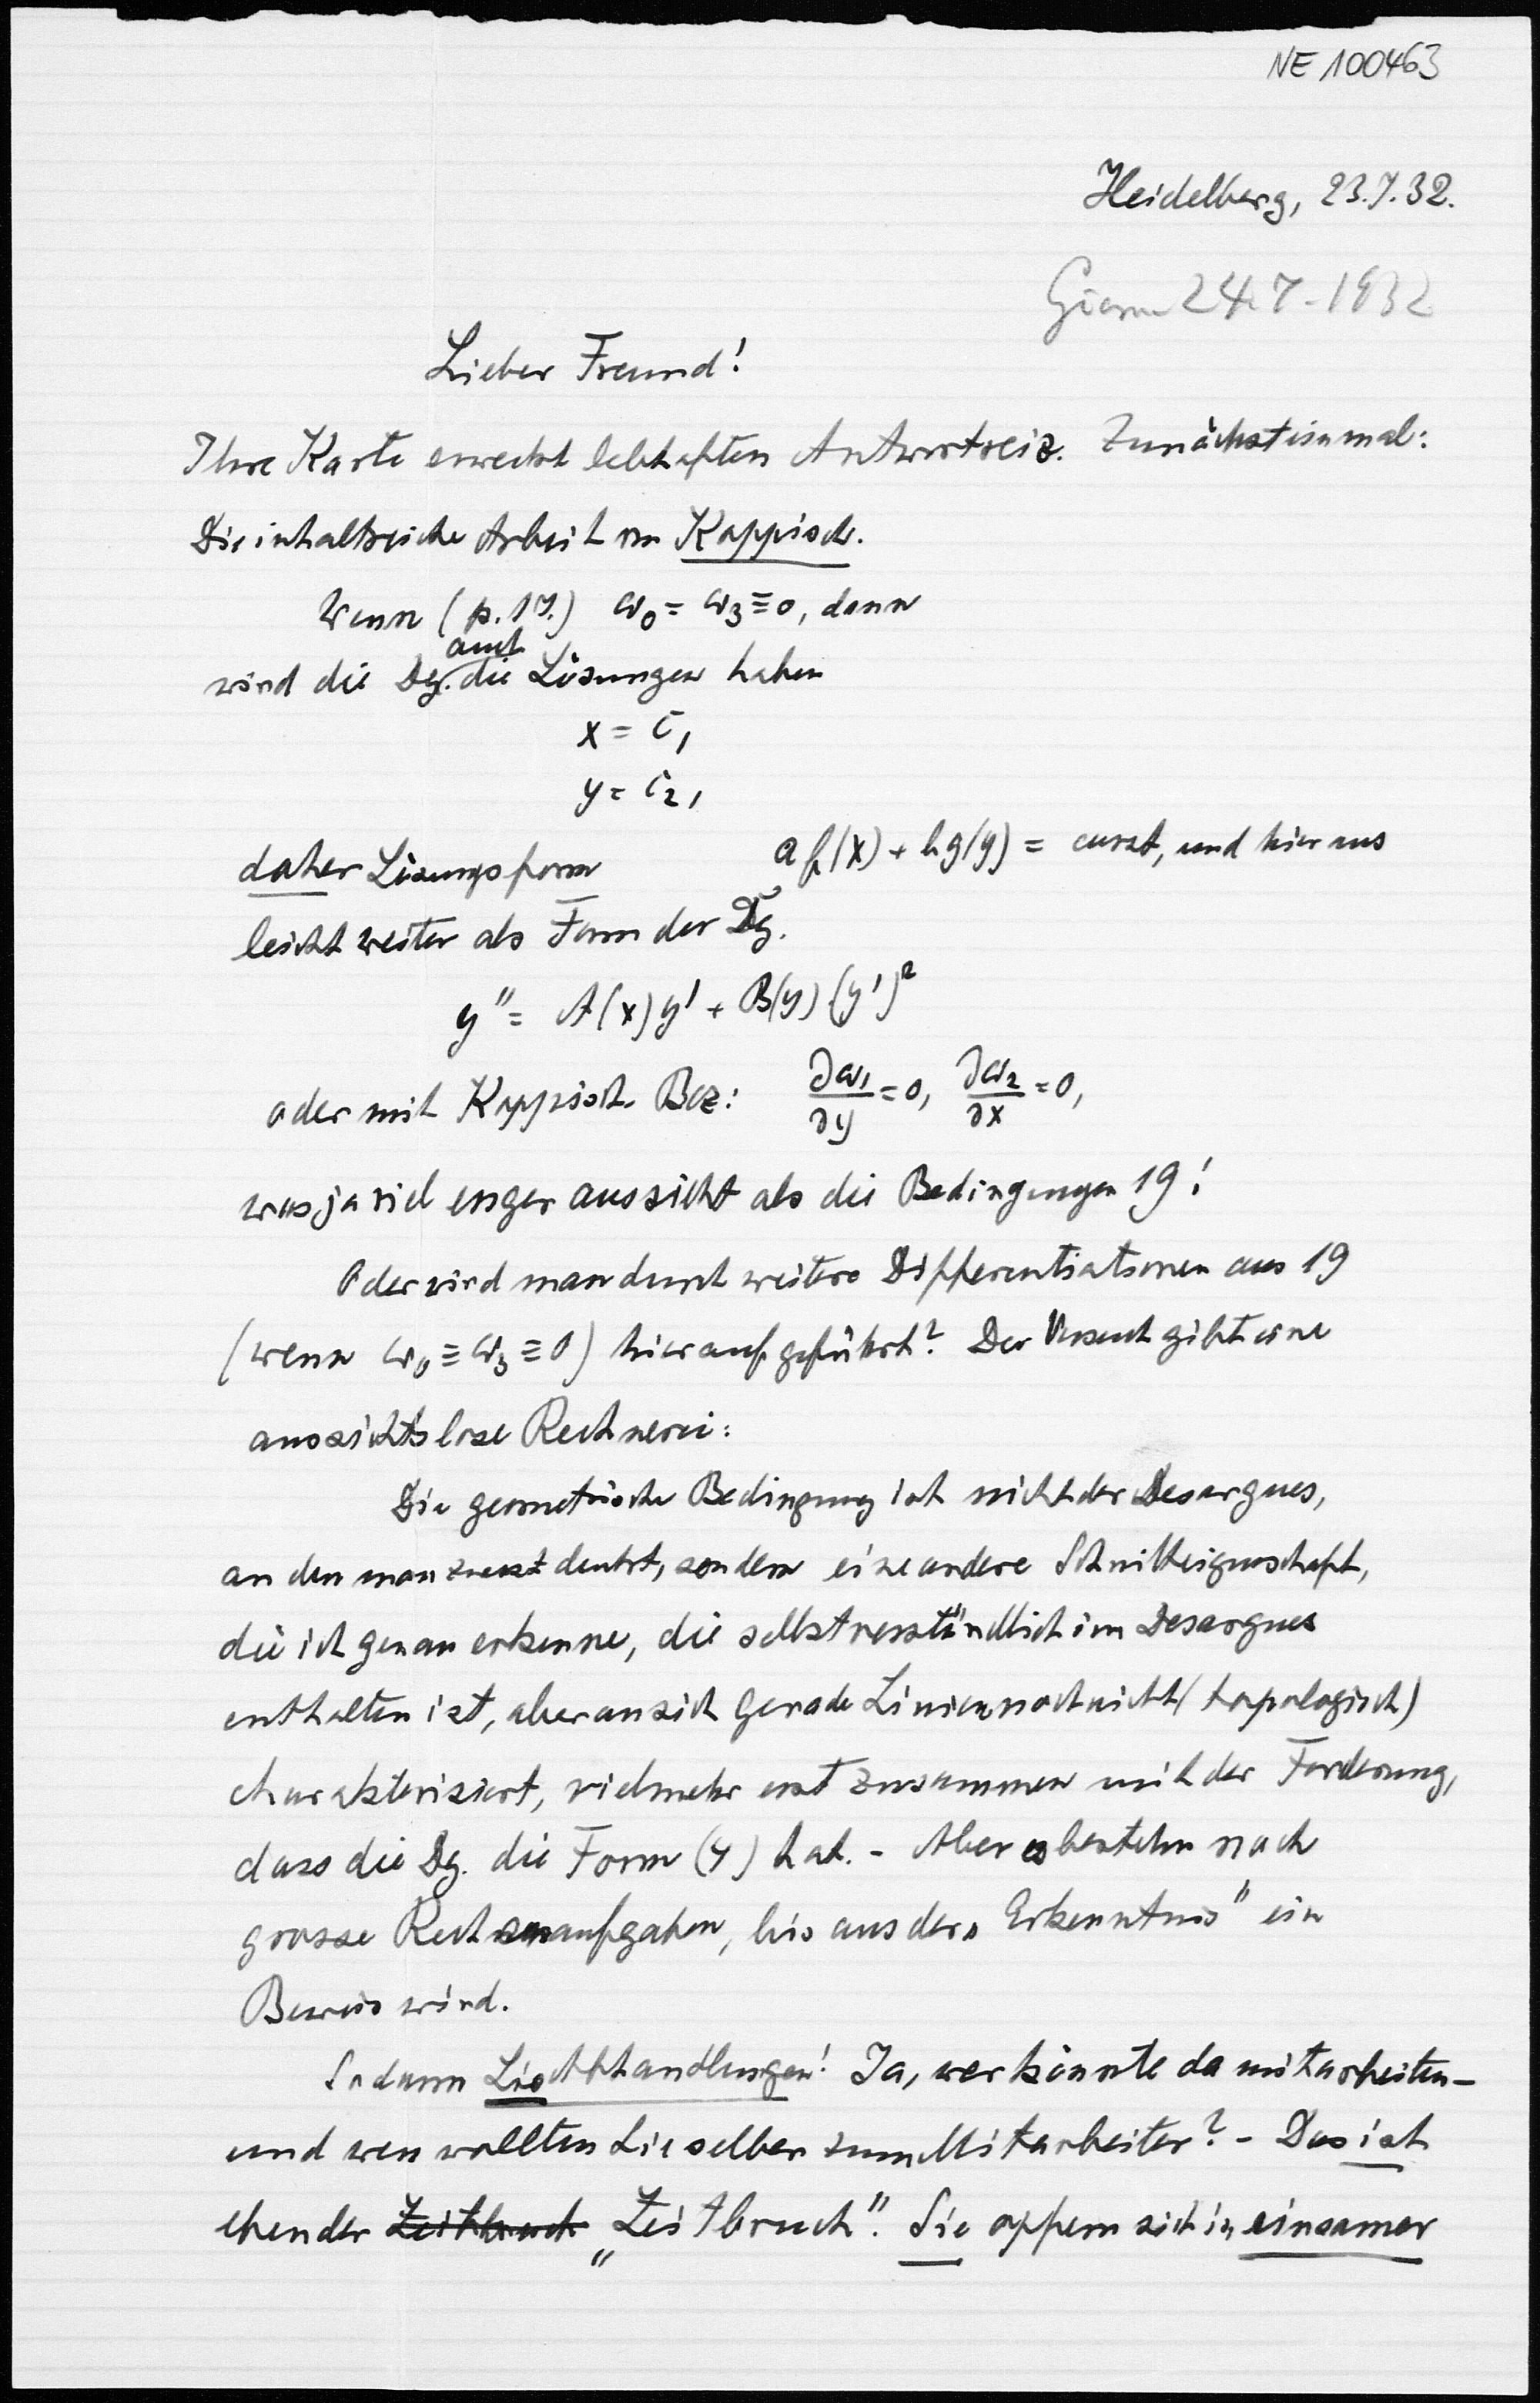 NE 100463
Heidelberg, 23.7.32.
24.7-1932
Lieber Freund!
Ihre Karte erweckt lebhaften Antwortreiz. Zunächst einmal:
Die inhaltreiche Arbeit von Kappisch.
Wenn (p. 17.) ω₀ = ω₃ ≡ 0, dann
auch
wird die Dg. die Lösungen haben
x = c₁
y = c₂,
daher Lösungsform a f(x) + b g(y) = const, und hieraus
leicht weiter als Form der Dg.
y'' = A(x) y' + B(y) (y')²
oder mit Kappisch Bez: ∂ω₁/∂y = 0, ∂ω₂/∂x = 0,
was ja viel enger aussieht als die Bedingungen 19!
Oder wird man durch weitere Differentiationen aus 19
(wenn ω₀ ≡ ω₃ ≡ 0) hierauf geführt? Der Versuch gibt eine
aussichtslose Rechnerei:
Die geometrische Bedingung ist nicht der Desargues,
an den man zuerst denkt, sondern eine andere Schnitteigenschaft,
die ich genau erkenne, die selbstverständlich im Desargues
enthalten ist, aber an sich gerade Linien noch nicht (topologisch)
charakterisiert, vielmehr erst zusammen mit der Forderung,
dass die Dg. die Form (4) hat. - Aber es bestehn noch
grosse Rechenaufgaben, bis aus der „Erkenntnis" ein
Beweis wird.
Sodann Lie Abhandlungen! Ja, wer könnte da mitarbeiten -
und wen wollten Sie selber zum Mitarbeiter? - Das ist
eben der Zeitbruch „Zeitbruch". Sie opfern sich in einsamer